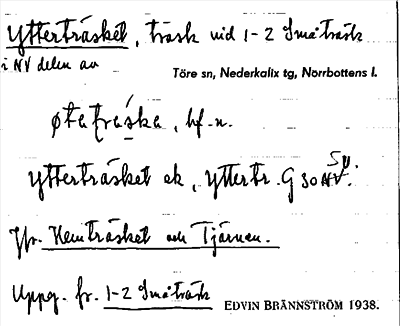 Ytterträsket, träsk vid 1-2 Småträsk
i NV delen av
Töre sn, Nederkalix tg, Norrbottens l.
øtatráska, hf. n.
Ytterträsket ek, Yttertr. G 30 NV. SV
Jfr. Hemträsket och Tjärnen.
Uppg. fr. 1-2 Småträsk
EDVIN BRÄNNSTRÖM 1938.